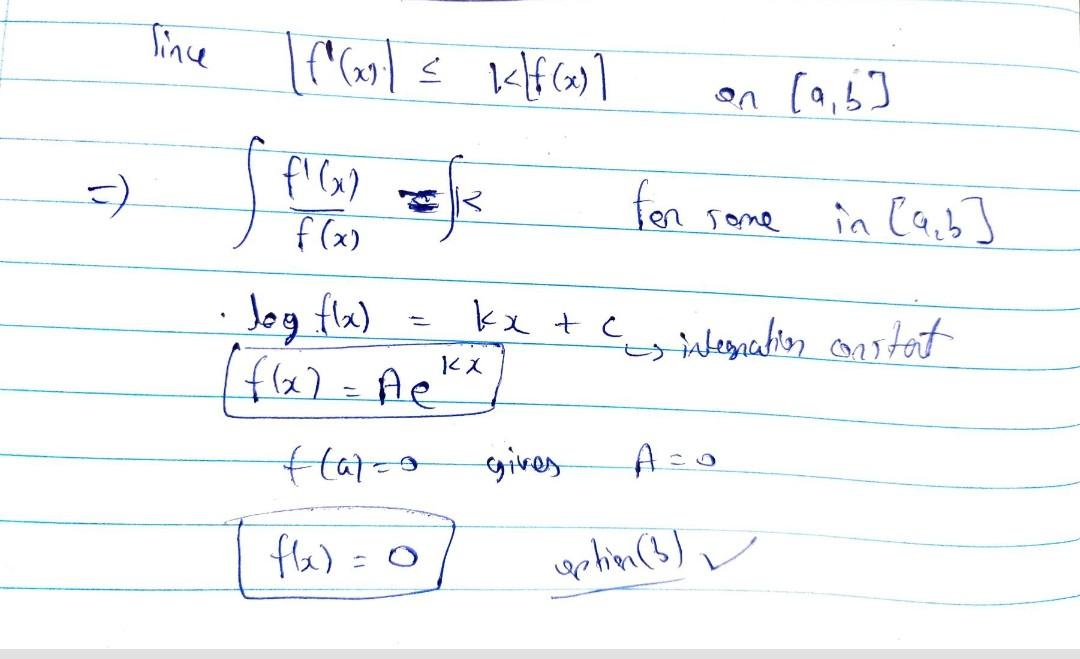 Since |f'(x)| ≤ k|f(x)| on [a,b]
=) ∫ f'(x)/f(x) = ∫k for some in [a,b]
log f(x) = kx + c ↳ integration constat
f(x) = Ae^kx
f(a)=0 gives A=0
f(x) = 0 option(b) ✓